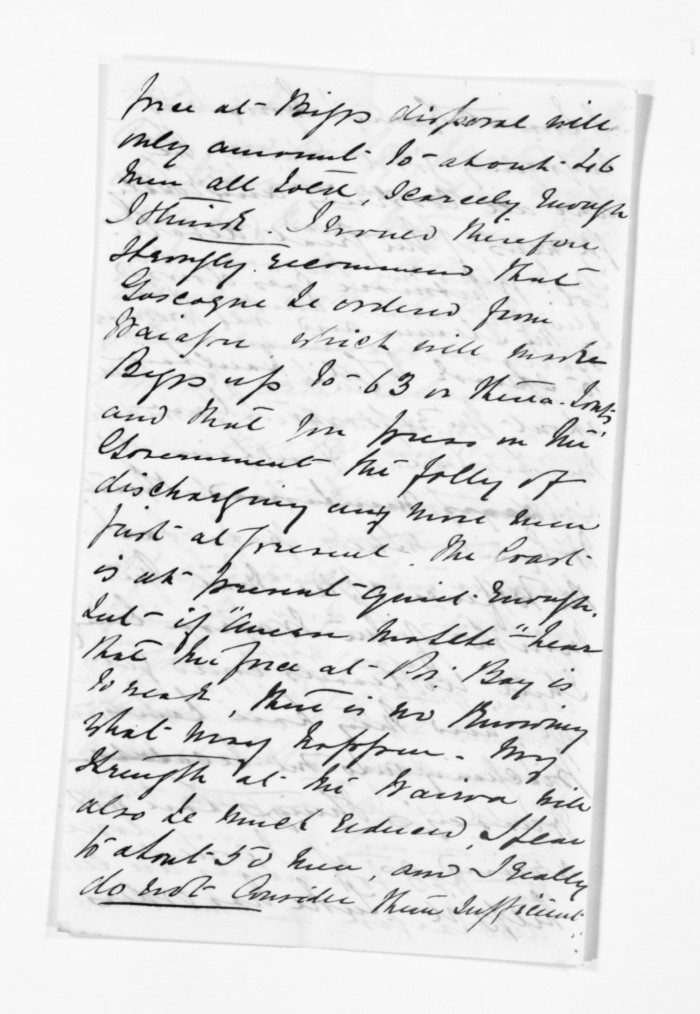 force at Biggs disposal will
only amount to about 46
men all told, scarcely enough
I think. I would therefore
strongly recommend that
Gascoyne be ordered from
Waiapu which will make
Biggs up to 63 or thereabouts
and that you press on the
Government the folly of
discharging any more men
just at present. The Coast
is at present quiet enough.
but if "Anaru Matete" hears
that the force at Po: Bay is
so weak, there is no knowing
what may happen. My
strength at the Wairoa will
also be much reduced, I fear
to about 50 men, and I really
do not consider them sufficient